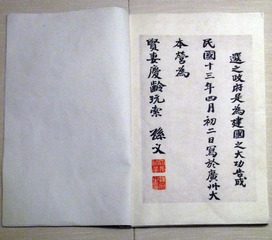 選之政府是為建國之大功告成
民國十三年四月初二日寫於廣州大
本營為
賢妻慶齡玩索 孫文